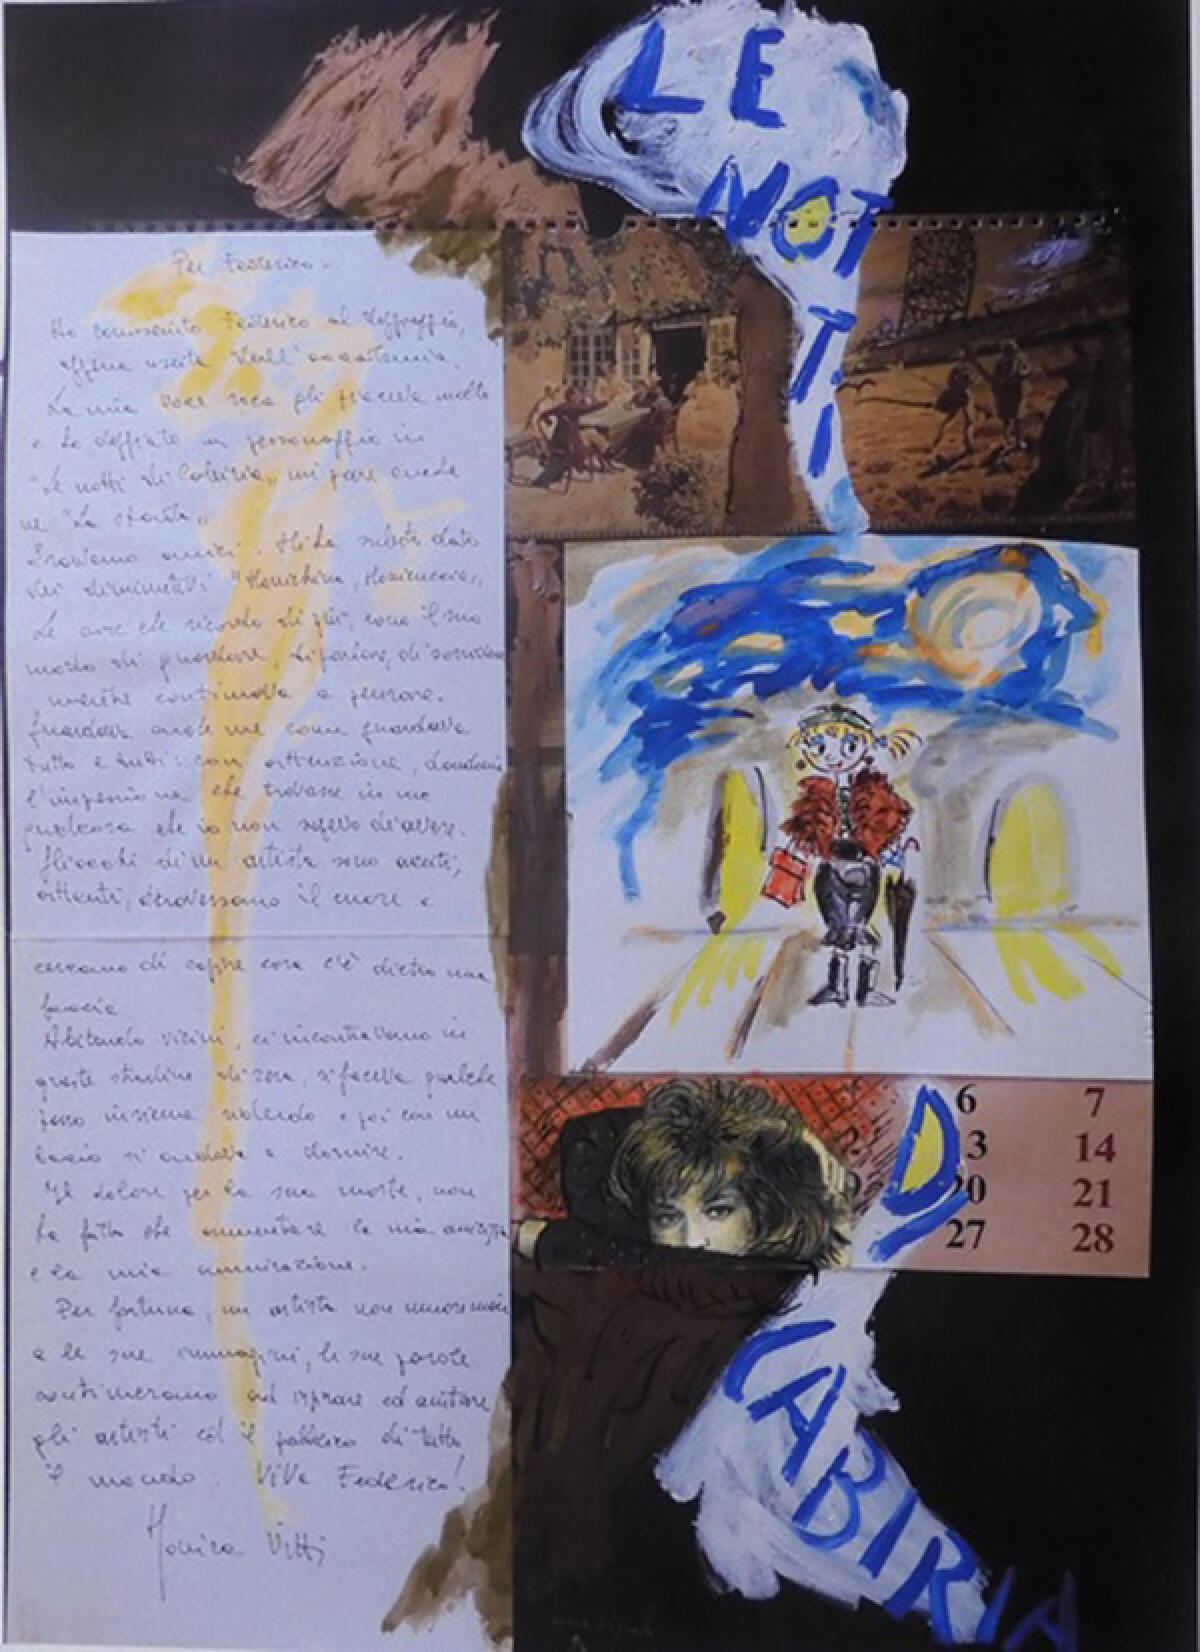 LE
NOTTI
DI
CABIRIA
Per Federico -
Ho conosciuto Federico al doppiaggio,
appena uscita dall'accademia.
La mia voce roca gli piaceva molto
e ho doppiato un personaggio in
"Le notti di Cabiria" mi pare anche
ne "La strada"
Eravamo amici. Mi ha subito dato
dei diminutivi
Le cose che ricordo di più, sono il suo
modo di guardare, di parlare, di sorridere
mentre continuava a pensare.
Guardava anche me come guardava
tutto e tutti: con attenzione, dandomi
l'impressione che trovasse in me
qualcosa che io non sapevo di avere.
Gli occhi di un artista sono acuti,
attenti, attraversano il cuore e
cercano di capire cosa c'è dietro una
faccia
Abitando vicini, ci incontravamo in
queste stradine di sera, si faceva qualche
passo insieme ridendo e poi con un
bacio si andava a dormire.
Il dolore per la sua morte, non
ha fatto che aumentare la mia amicizia
e la mia ammirazione.
Per fortuna, un artista non muore mai
e le sue immagini, le sue parole
continueranno ad ispirare ed aiutare
gli artisti ed il pubblico di tutto
il mondo. Viva Federico!
Monica Vitti
6 7
13 14
20 21
27 28